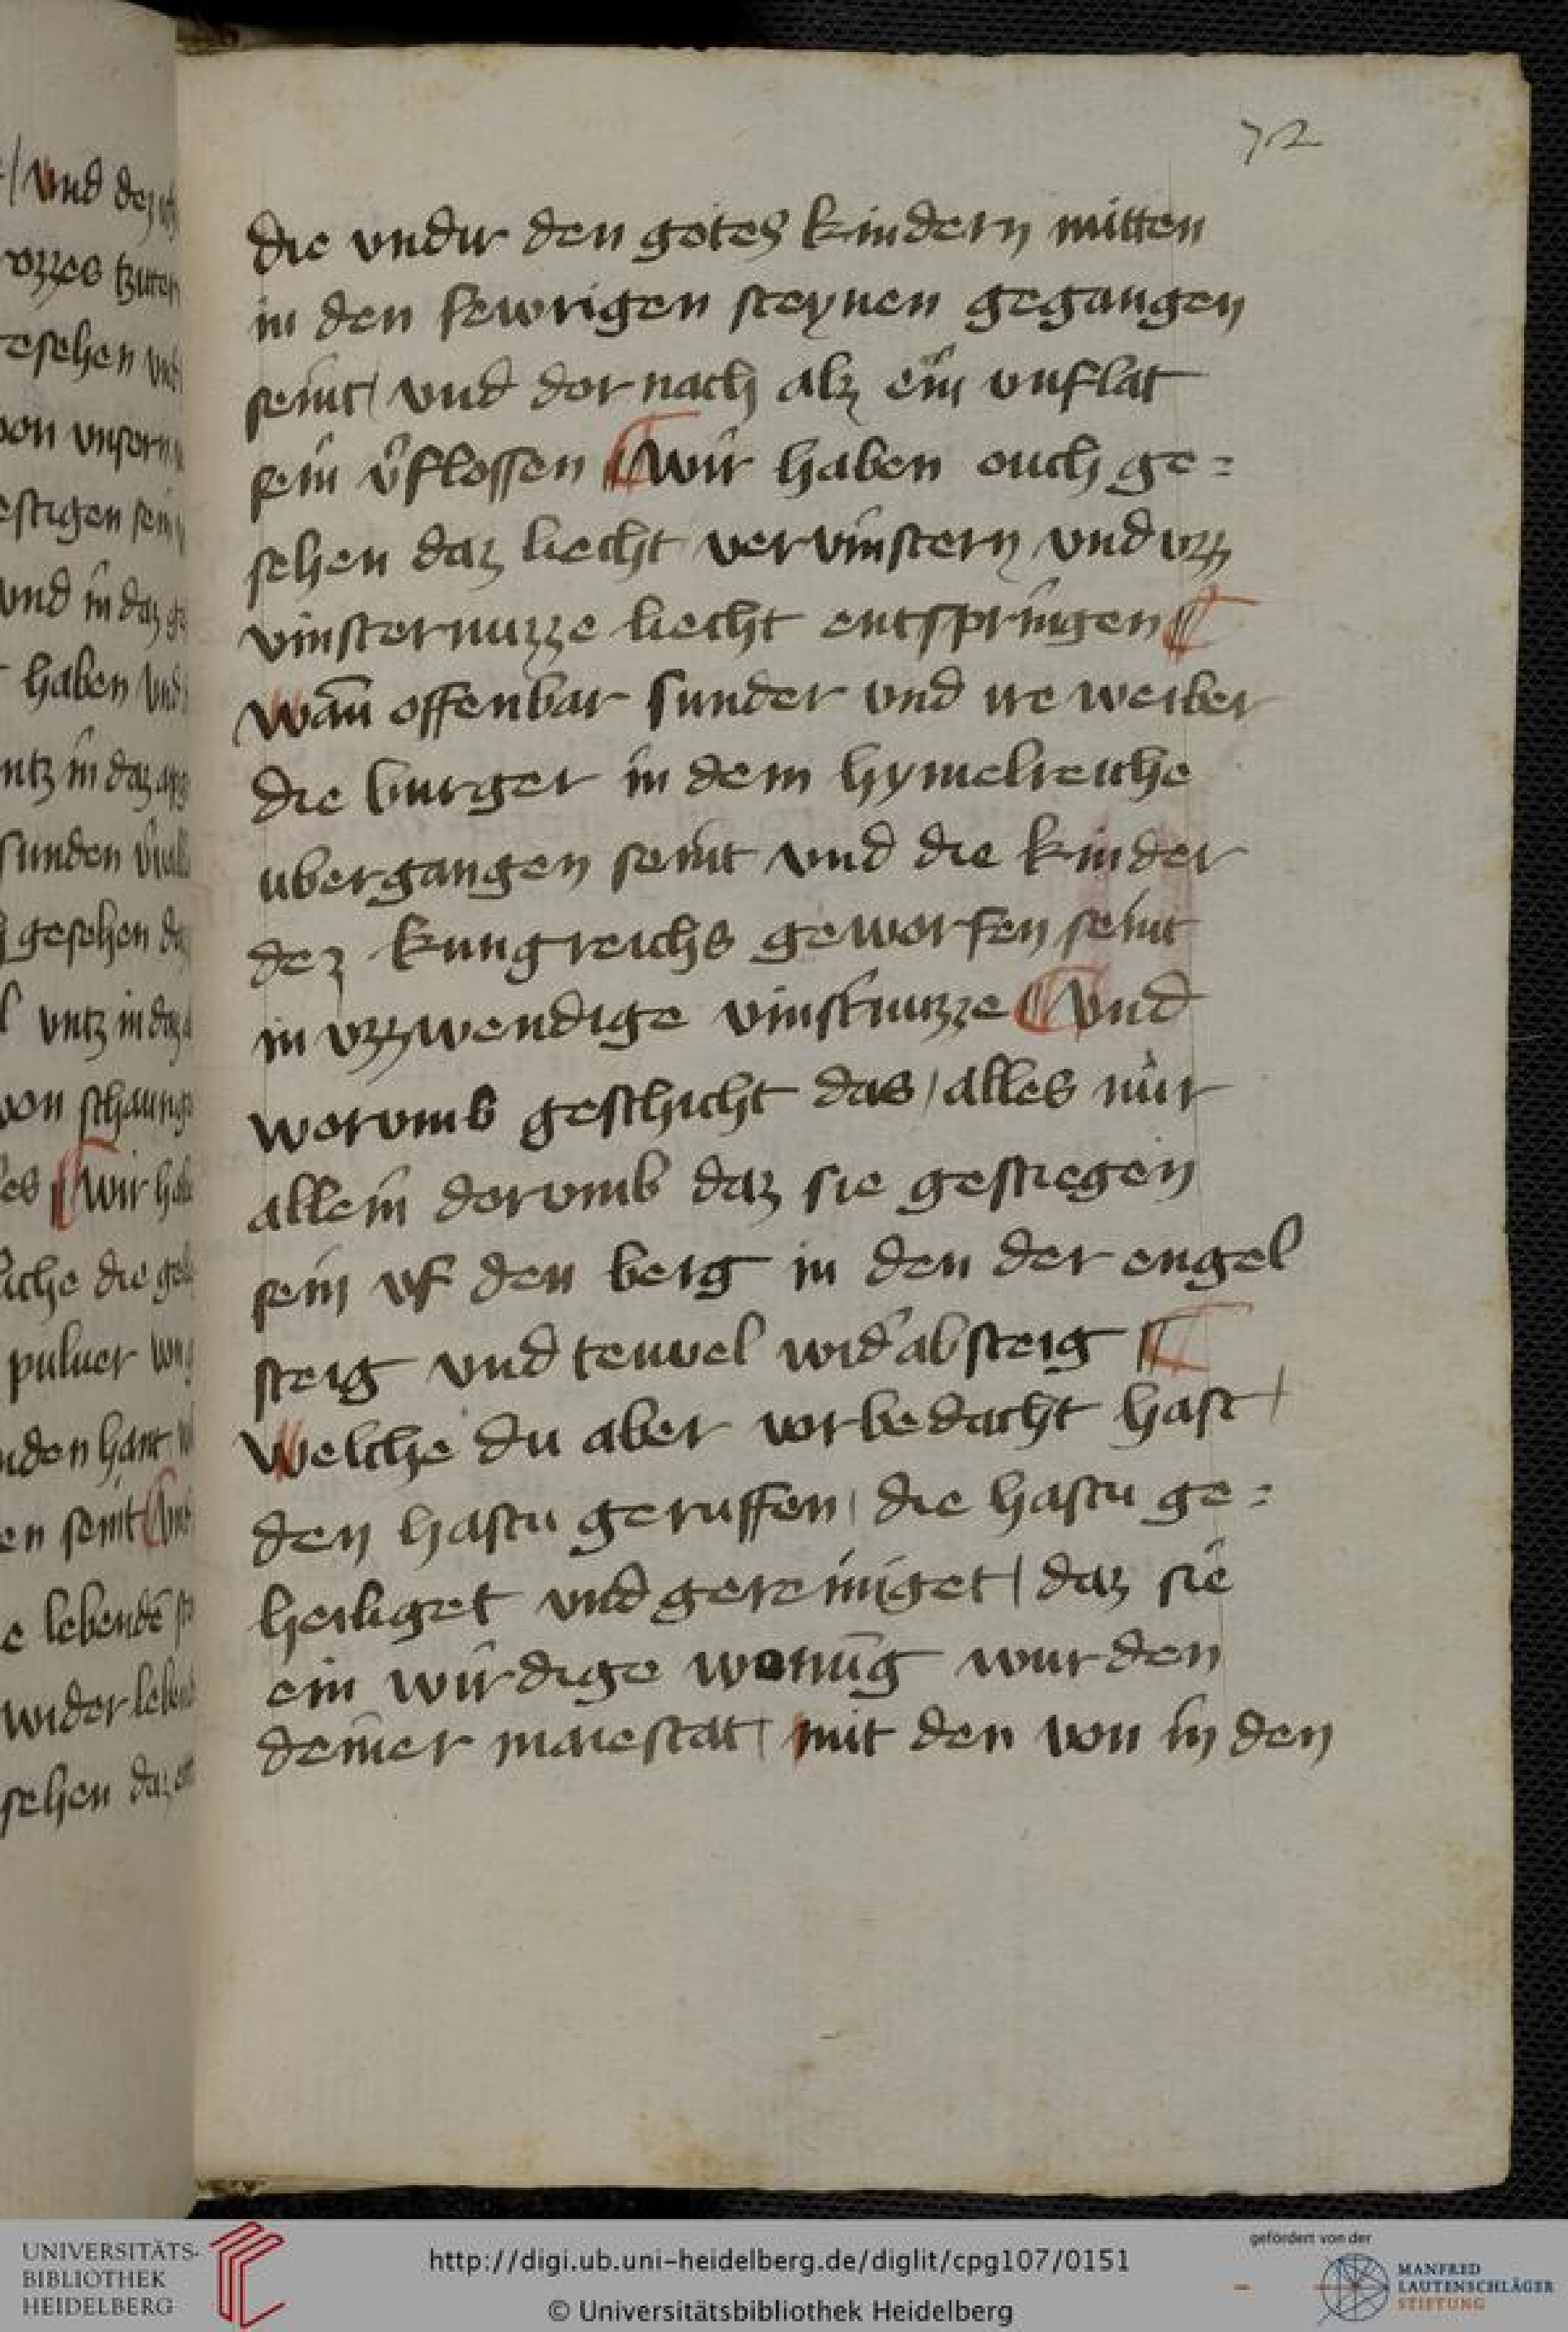 72
die vndir den gotes kindern mitten
in den fewrigen steynen gegangen
seint / vnd dor nach alz ein vnflat
sein v̊flossen ¶ wir haben ouch ge=
sehen daz liecht vervinstern vnd vzz
vinsternuzze liecht entspringen ¶
wan̄ offenbar sunder vnd ire weiber
die burger in dem hymelreiche
ubergangen seint vnd die kinder
dez kungreichs geworfen seint
in vzzwendige vinstnuzze ¶ vnd
worvmb geschicht das / alles nür
allein dorvmb daz sie gestiegen
sein vf den berg in den der engel
steig vnd teuvel wid'absteig ¶
welche du aber vorbedacht hast /
den hastu geruffen / die hastu ge=
heiliget vnd gereiniget / daz sie
ein wirdige wonūg wurden
deiner maiestat / mit den von in den
UNIVERSITÄTS-
BIBLIOTHEK
HEIDELBERG
http://digi.ub.uni-heidelberg.de/diglit/cpg107/0151
© Universitätsbibliothek Heidelberg
gefördert von der
MANFRED
LAUTENSCHLÄGER
STIFTUNG